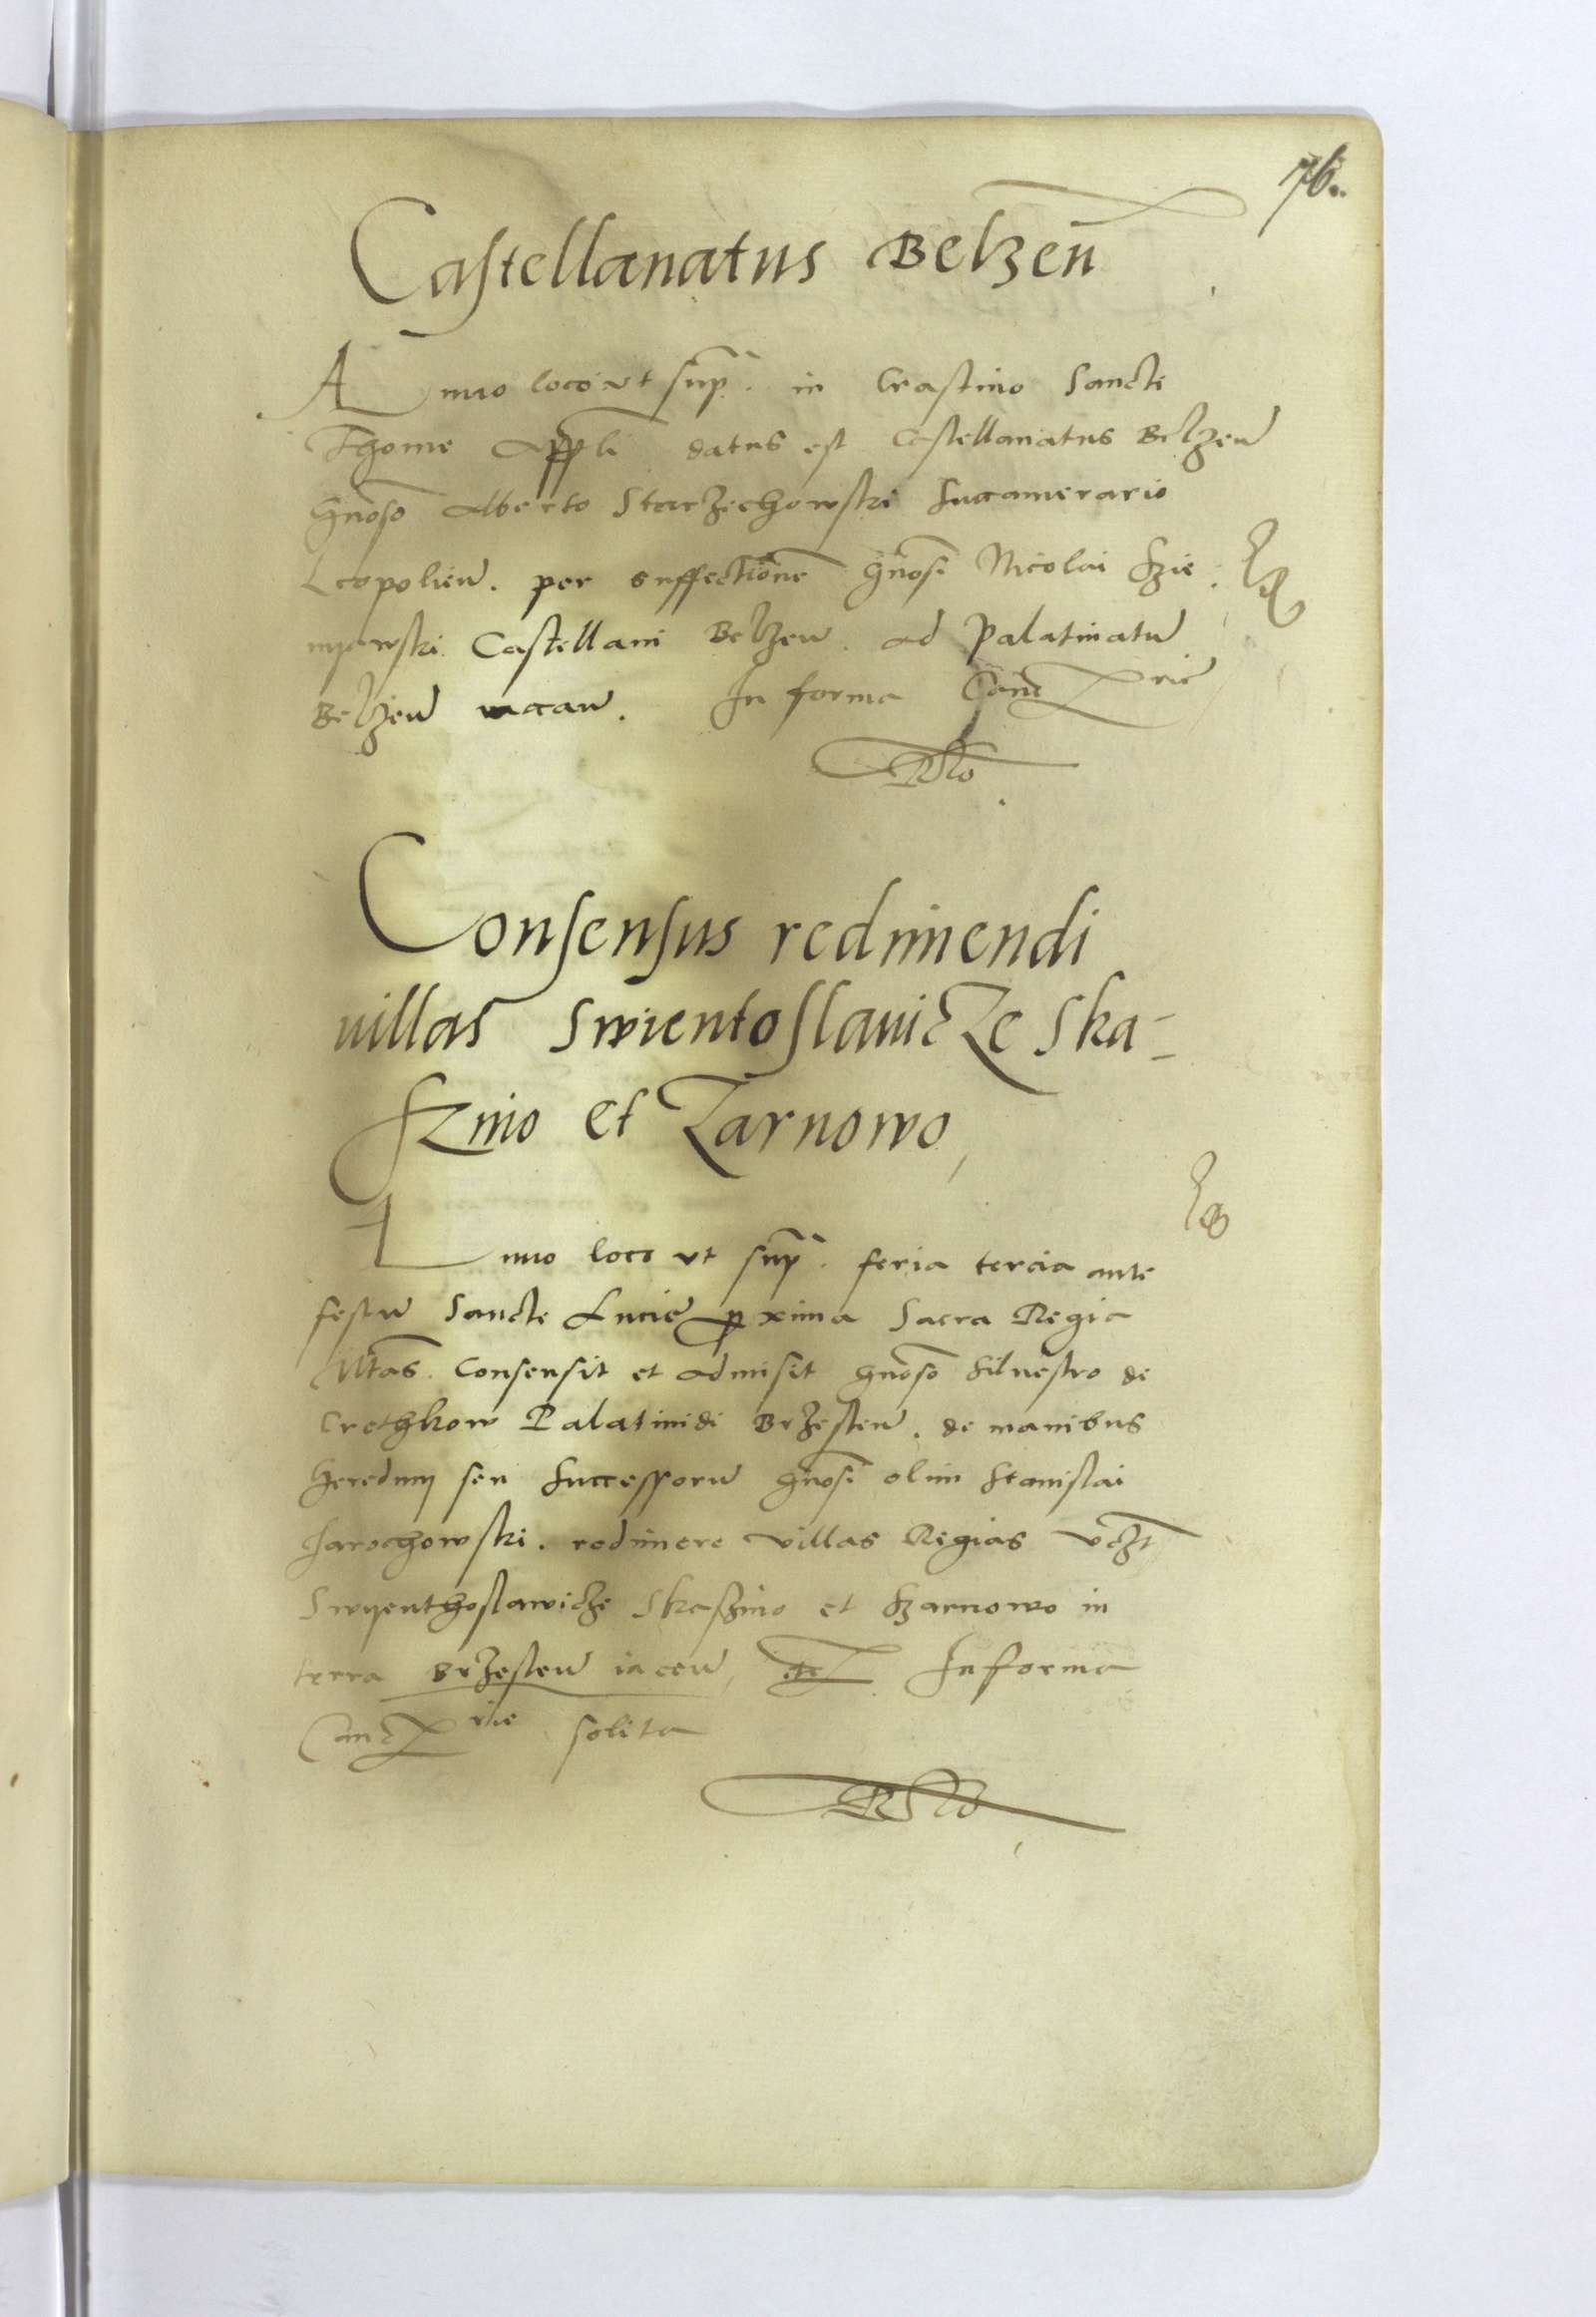 76.
Castellanatus Belzen̄
Anno loco ut sup̄. in Crastino Sancti
Thome Appli datus est Castellanatus Belzen̄
gn̄oso Alberto Starzechowski Succamerario
Leopolien̄. per suffectionē gn̄osi Nicolai Szie
nyawski Castellani Belzen̄. ad Palatinatū
Belzen̄ vacan̄. In forma Cancrie
Consensus redimendi
villas Swientoslauicze Ska=
szino et Zarnowo,
Anno loco ut sup̄. feria tercia ante
festū Sancte Lucie proxima Sacra Regia
Mtas. Consensit et admisit gn̄oso Siluestro de
Crethkow Palatinidi Brzesten̄. de manibus
heredum seu Successorū gn̄osi olim Stanislai
Jarochowski. redimere villas Regias vczt
Swyenthoslawicze Skaszino et Szarnowo in
terra Brzesten̄ iacen̄, etc In forma
Cancrie solita